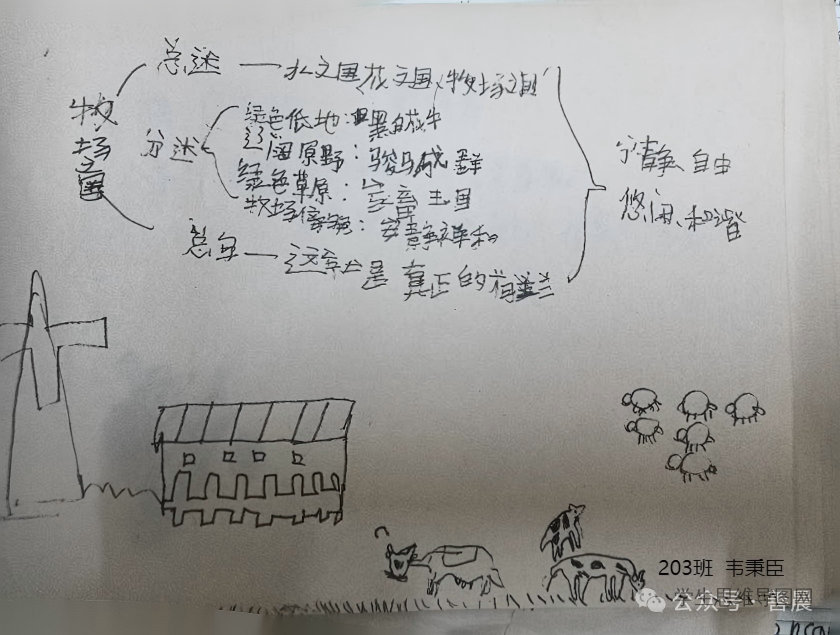 牧场之国
总述
水之国、花之国、牧场之国
分述
绿色低地：黑白花牛
辽阔原野：骏马成群
绿色草原：牲畜王国
牧场傍晚：安静祥和
这才是真正的荷兰
宁静、自由
悠闲、和谐
203班 韦秉臣
学生思维导图网